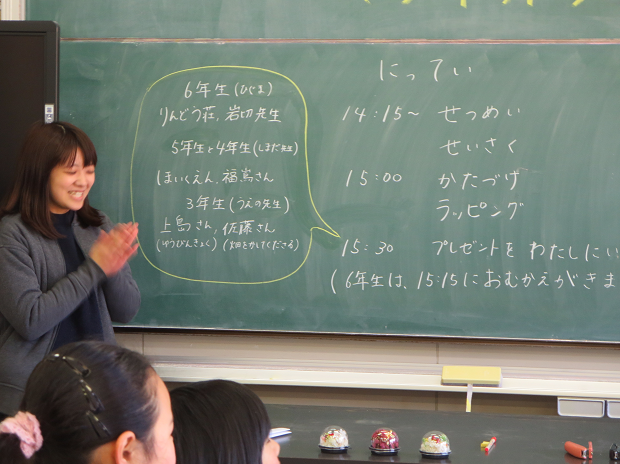 にってい
14:15~ せつめい
せいさく
15:00 かたづけ
ラッピング
15:30 プレゼントを わたしにい
(6年生は、15:15におむかえがきま
6年生(ひぐま)
りんどう荘,岩切先生
5年生と4年生(しまだ先生)
ほいくえん、福嶌さん
3年生(うえの先生)
上島さん,佐藤さん
(ゆうびんきょく)(畑をかしてくださる)